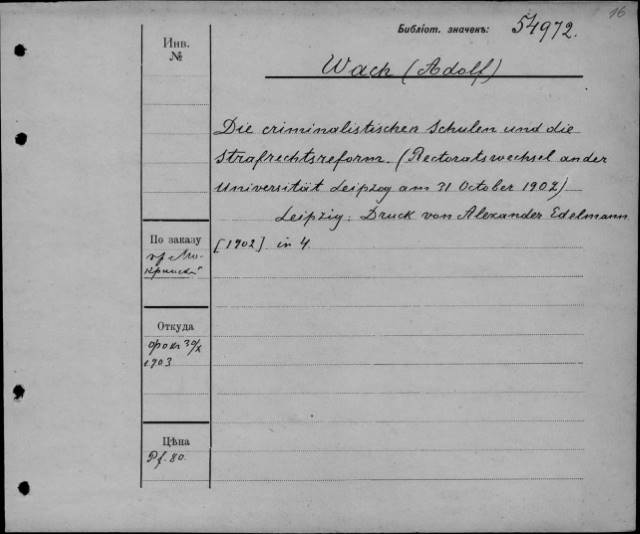 16
Библіот. значекъ: 54972.
Инв.
№
Wach (Adolf)
Die criminalistischen Schulen und die
Strafrechtsreform. (Rectoratswechsel an der
Universität Leipzog am 31 October 1902)
Leipzig: Druck von Alexander Edelmann
[1902] in 4.
По заказу
Откуда
30/X
1903
Цѣна
Pf. 80.